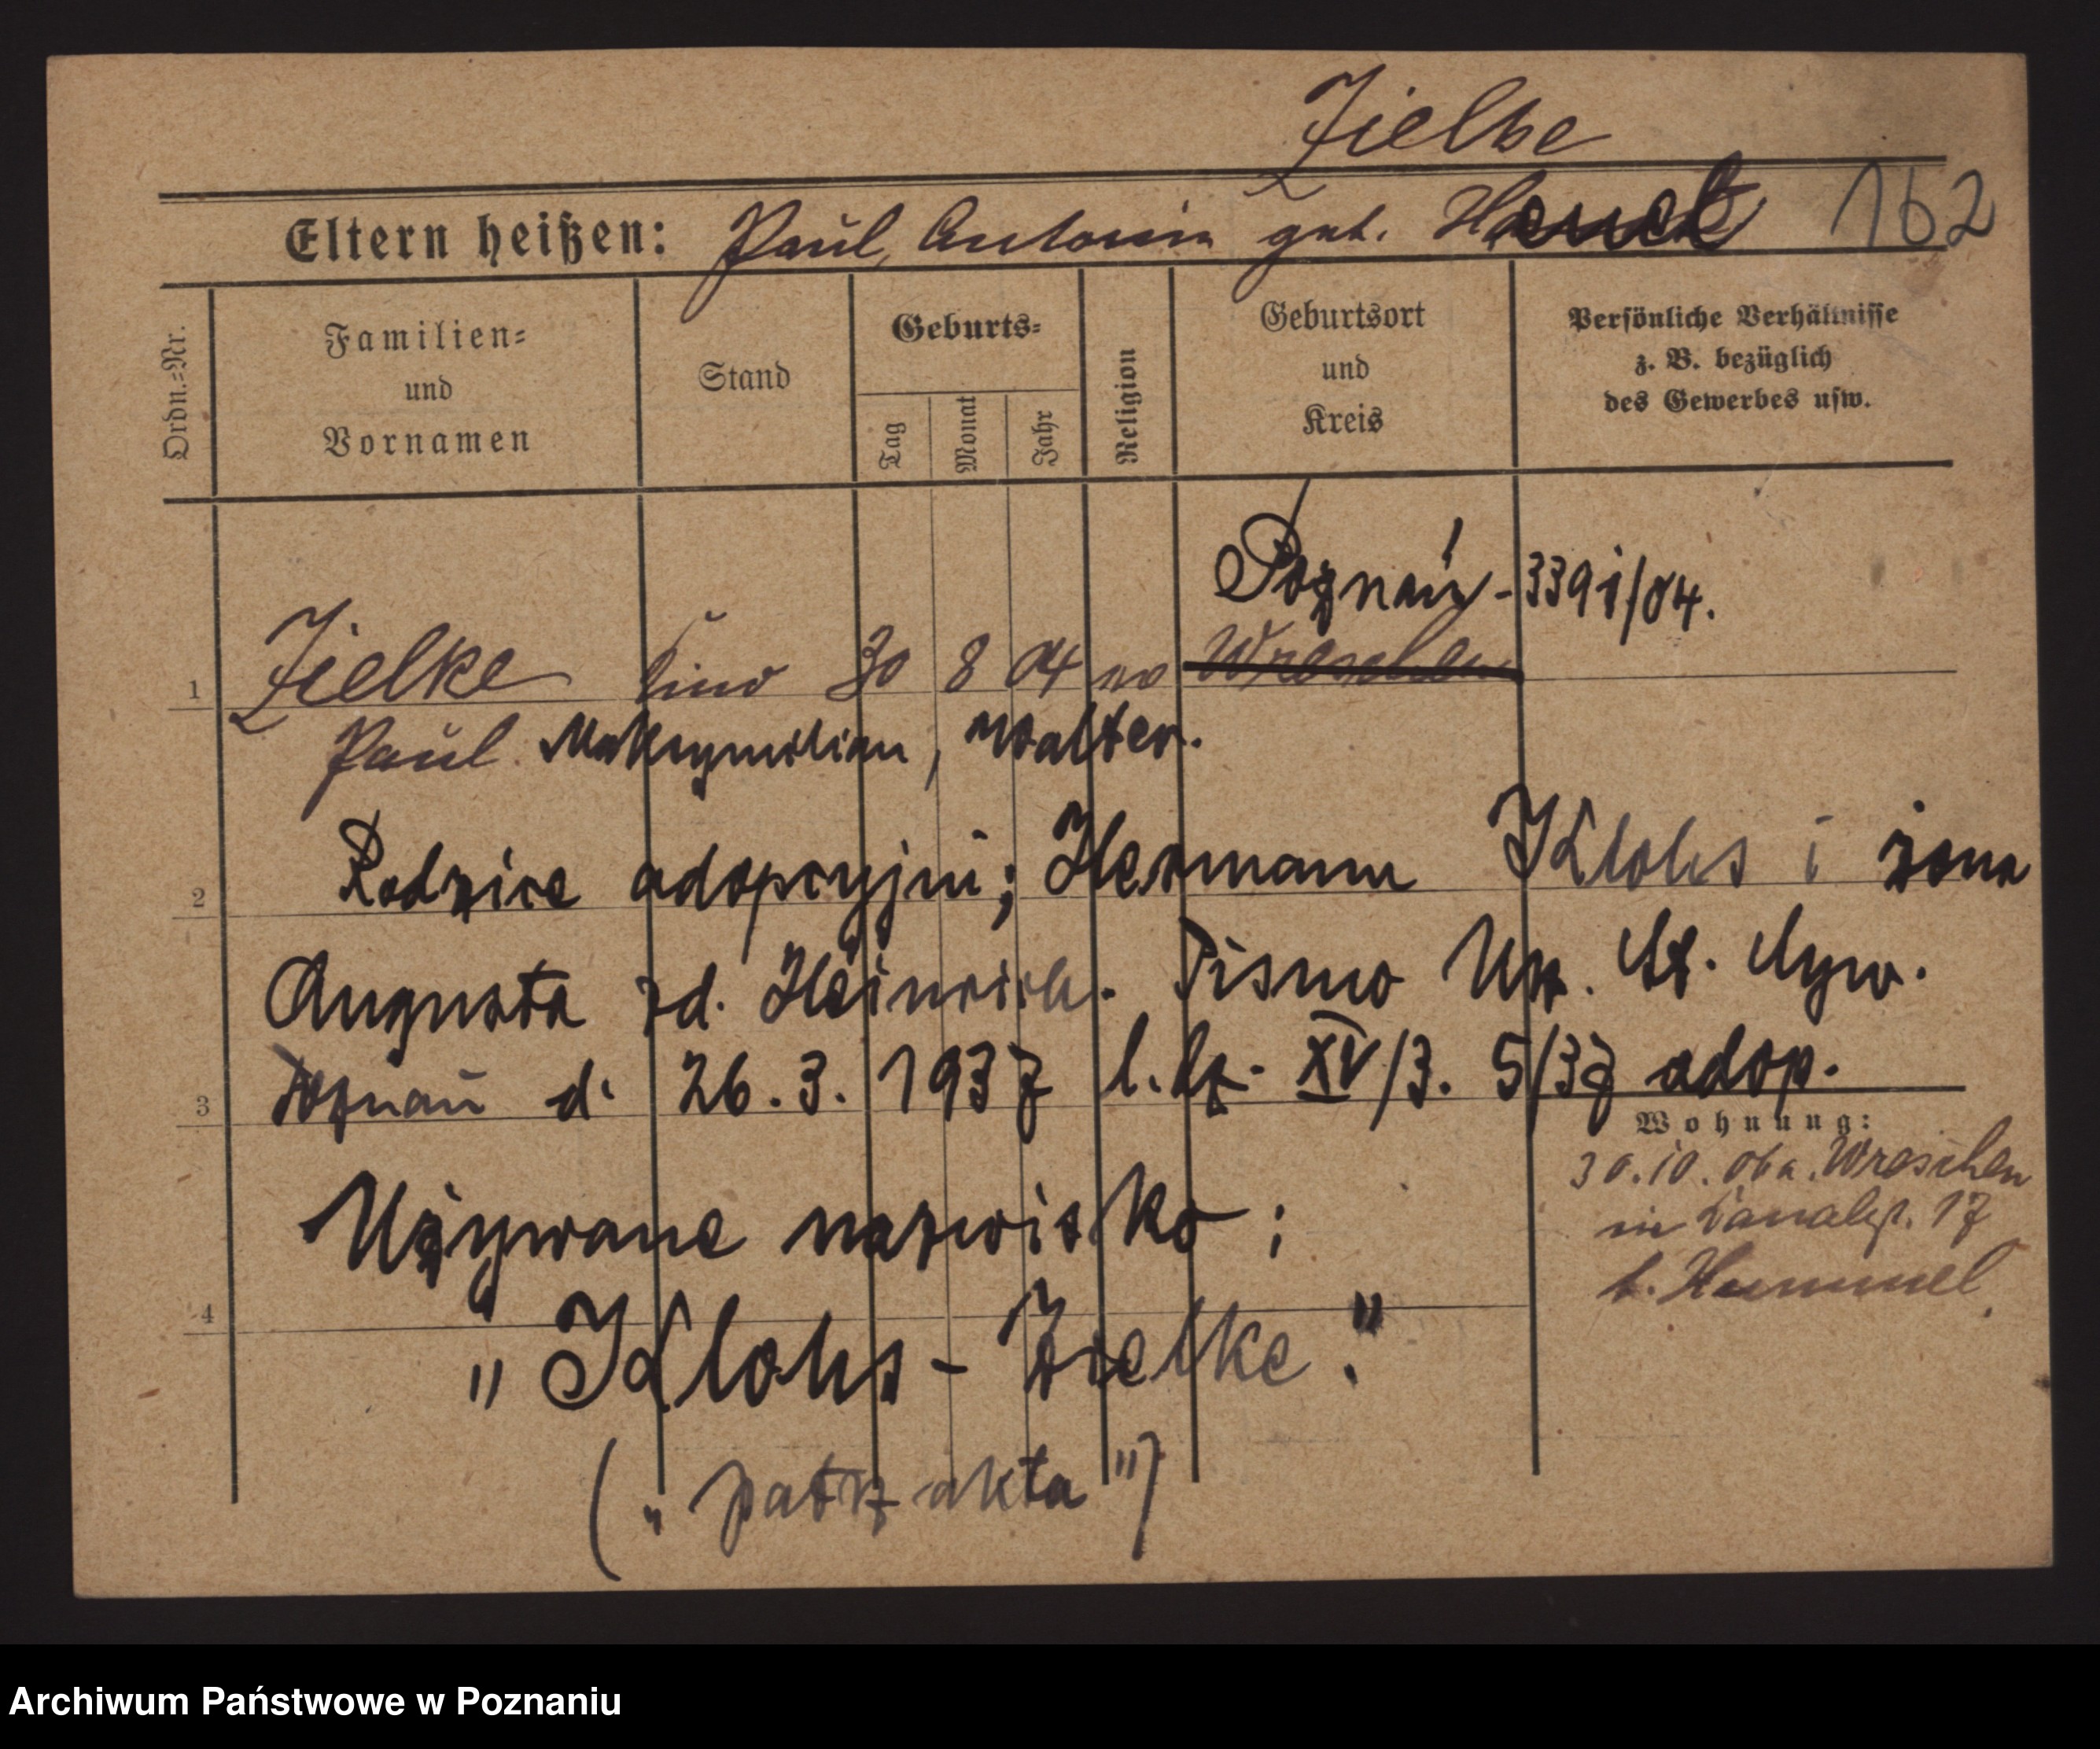 Zielke
Eltern heißen: Paul, Antonin geb. Hauck 162
Ordn.-Nr.
Familien-
und
Vornamen
Stand
Geburts-
Tag
Monat
Jahr
Religion
Geburtsort
und
Kreis
Persönliche Verhältnisse
z. B. bezüglich
des Gewerbes usw.
Poznań - 3391/04.
1 Zielke Kind 30 8 04 ev Wreschen
Paul Maksymilian, Walter.
2 Rodzice adopcyjni; Hermann Klohs i żona
Augusta zd. Heinrich. Pismo Urz. St. Cyw.
3 Poznań d. 26.3.1937 l.dz. XV/3. 5/37 adop.
Wohnung:
30.10.06 a. Wreschen
in Kanalst. 17
b. Hummel
Używane nazwisko:
4
"Klohs-Zielke."
("patrz akta")
Archiwum Państwowe w Poznaniu